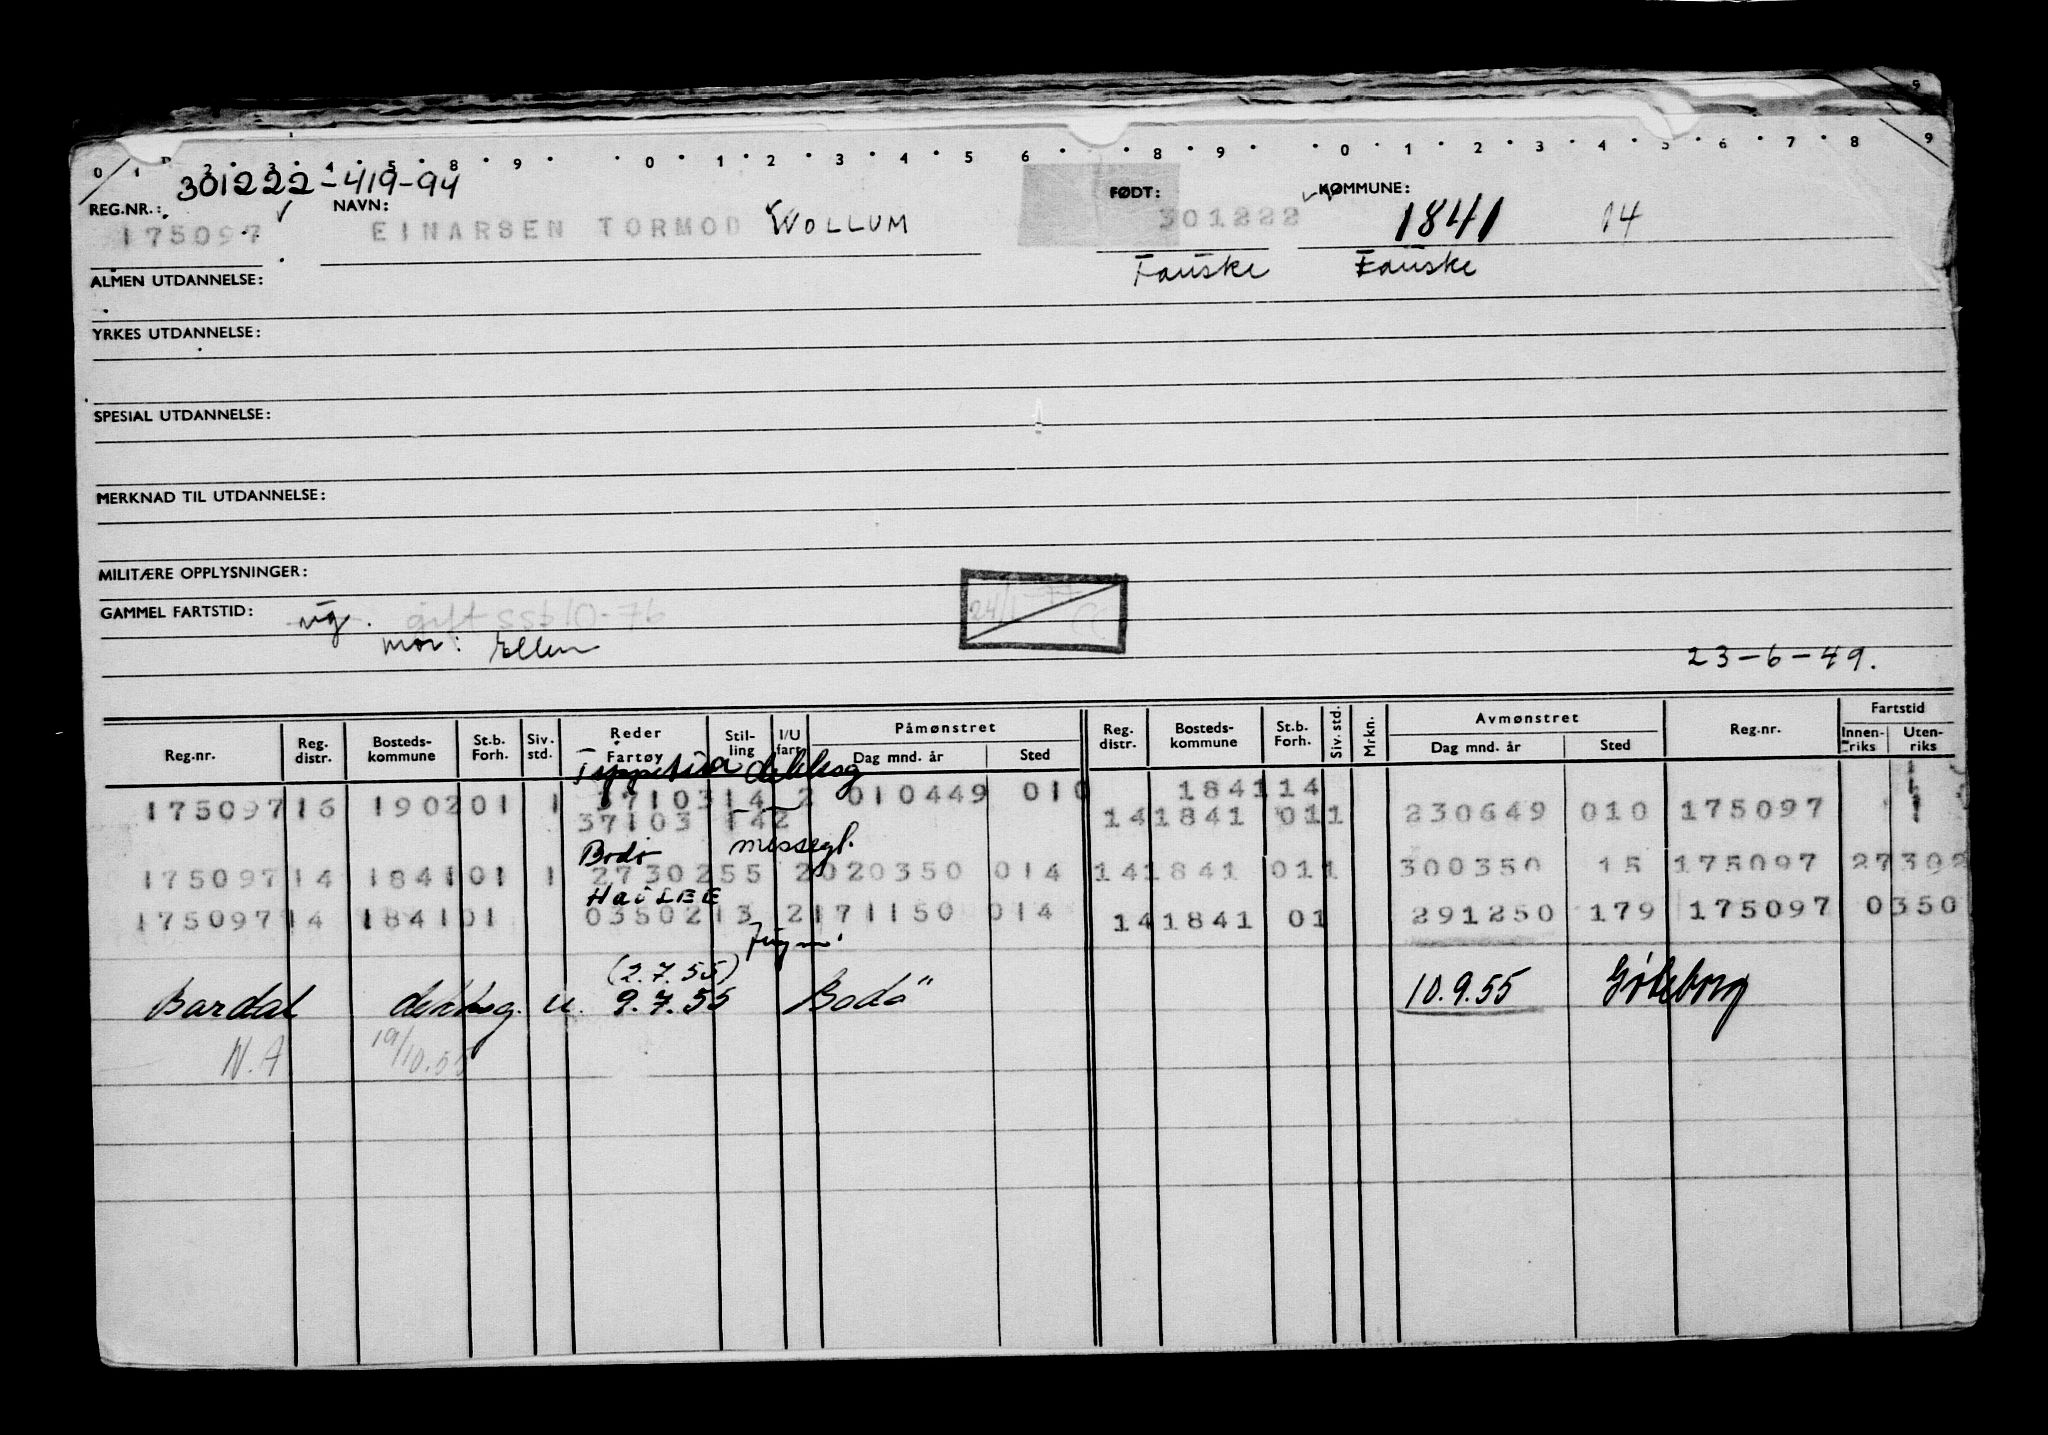 0 1 2 3 4 5 8 9 0 1 2 3 4 5 6 8 9 0 1 2 3 4 5 6 7 8 9
301222-419-94
REG.NR.: NAVN: FØDT: KOMMUNE:
175097 EINARSEN TORMOD WOLLUM 301222 1841 14
ALMEN UTDANNELSE: Fauske Fauske
YRKES UTDANNELSE:
SPESIAL UTDANNELSE:
MERKNAD TIL UTDANNELSE:
MILITÆRE OPPLYSNINGER:
GAMMEL FARTSTID: ug. gift SSB 10-76 24/1-77
mor: Ellen
23-6-49.
Reg.nr. Reg. distr. Bosteds-kommune St.b. Forh. Siv. std. Reder Fartøy Stil-ling I/U fart Påmønstret Dag mnd. år Sted Reg. distr. Bosteds-kommune St.b. Forh. Siv. std. Mrkn. Avmønstret Dag mnd. år Sted Reg.nr. Fartstid Innen-riks Uten-riks
dekksg
175097 16 1902 01 1 37103 14 2 010449 010 1841 14
37103 142 14 1841 01 1 230649 010 175097
Bodø messegt.
175097 14 1841 01 1 27302 55 2 020350 014 14 1841 01 1 300350 15 175097 27302
Hai LEE
175097 14 1841 01 03502 13 2 171150 014 14 1841 01 291250 179 175097 0350
jugm.
(2.7.55)
Bardal dekksg. u. 9.7.55 Bodø 10.9.55 Gøteborg
N.A 19/10.55